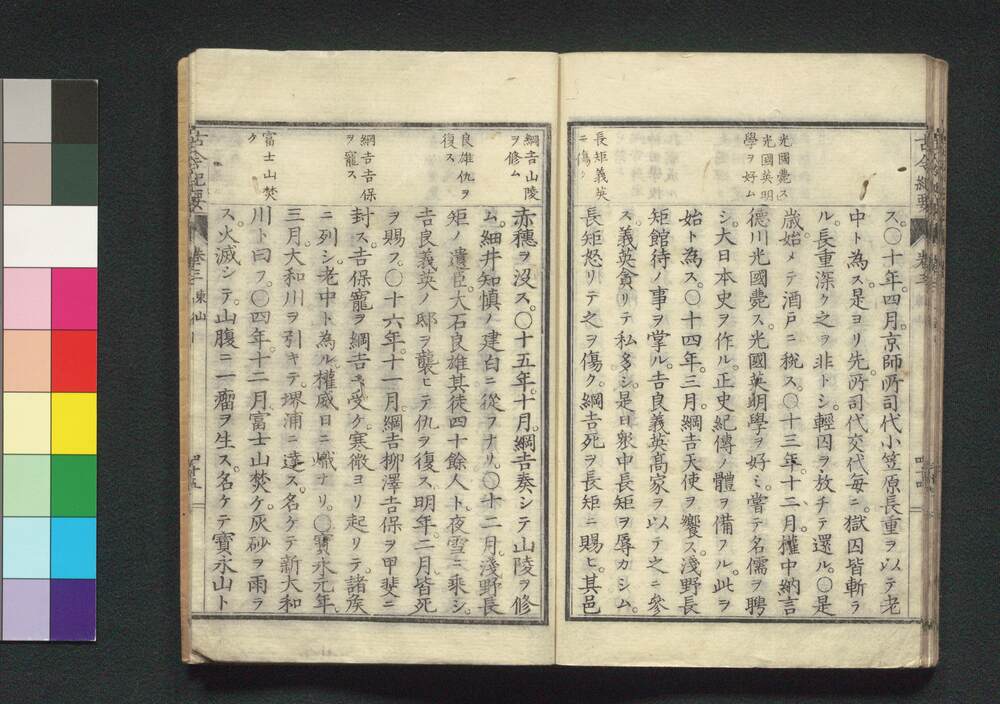 光國薨ス
光國英明
學ヲ好ム
長矩義英
ニ傷ク
ス。〇十年。四月。京師所司代小笠原長重ヲ以テ老
中ト為ス。是ヨリ先。所司代交代毎ニ。獄囚皆斬ラ
ル。長重深ク之ヲ非トシ。輕囚ヲ放チテ還ル。〇是
歳。始メテ酒戸ニ税ス。〇十三年。十二月。權中納言
德川光國薨ス。光國英明學ヲ好ミ。嘗テ名儒ヲ聘
シ。大日本史ヲ作ル。正史紀傳ノ體ヲ備フル。此ヲ
始ト為ス。〇十四年。三月。綱吉天使ヲ饗ス。淺野長
矩館待ノ事ヲ掌ル。吉良義英高家ヲ以テ之ニ參
ス。義英貪リテ私多シ。是日衆中長矩ヲ辱カシム。
長矩怒リテ之ヲ傷ク。綱吉死ヲ長矩ニ賜ヒ。其邑
綱吉山陵
ヲ修ム
良雄仇ヲ
復ス
綱吉吉保
ヲ寵ス
富士山焚
ク
赤穗ヲ沒ス。〇十五年。十月。綱吉奏シテ山陵ヲ修
ム。細井知慎ノ建白ニ從フナリ。〇十二月。淺野長
矩ノ遺臣。大石良雄其徒四十餘人ト。夜雪ニ乘シ。
吉良義英ノ邸ヲ襲ヒテ仇ヲ復ス。明年。二月。皆死
ヲ賜フ。〇十六年。十一月。綱吉柳澤吉保ヲ甲斐ニ
封ス。吉保寵ヲ綱吉ニ受ケ。寒微ヨリ起リテ。諸矦
ニ列シ。老中ト為ル。權威日ニ熾ナリ。〇寶永元年。
三月。大和川ヲ引キテ。堺浦ニ達ス。名ケテ新大和
川ト曰フ。〇四年。十二月。富士山焚ケ。灰砂ヲ雨ラ
ス。火滅シテ。山腹ニ一瘤ヲ生ス。名ケテ寶永山ト
古今紀要
卷三
東山
四十五